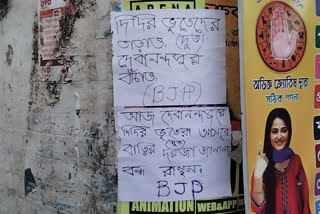 ARENA
দিদির ভূতেদের
তাড়াও, (দূত)
দেবানন্দপুর
বাঁচাও,
(BJP)
আজ দেবানন্দপুরে
দিদির ভূতেরা আসবে
(দূত)
বাড়ির দরজা জানালা
বন্ধ রাখুন
BJP
ANIMATION WEB&APP
সঠিক গণনা